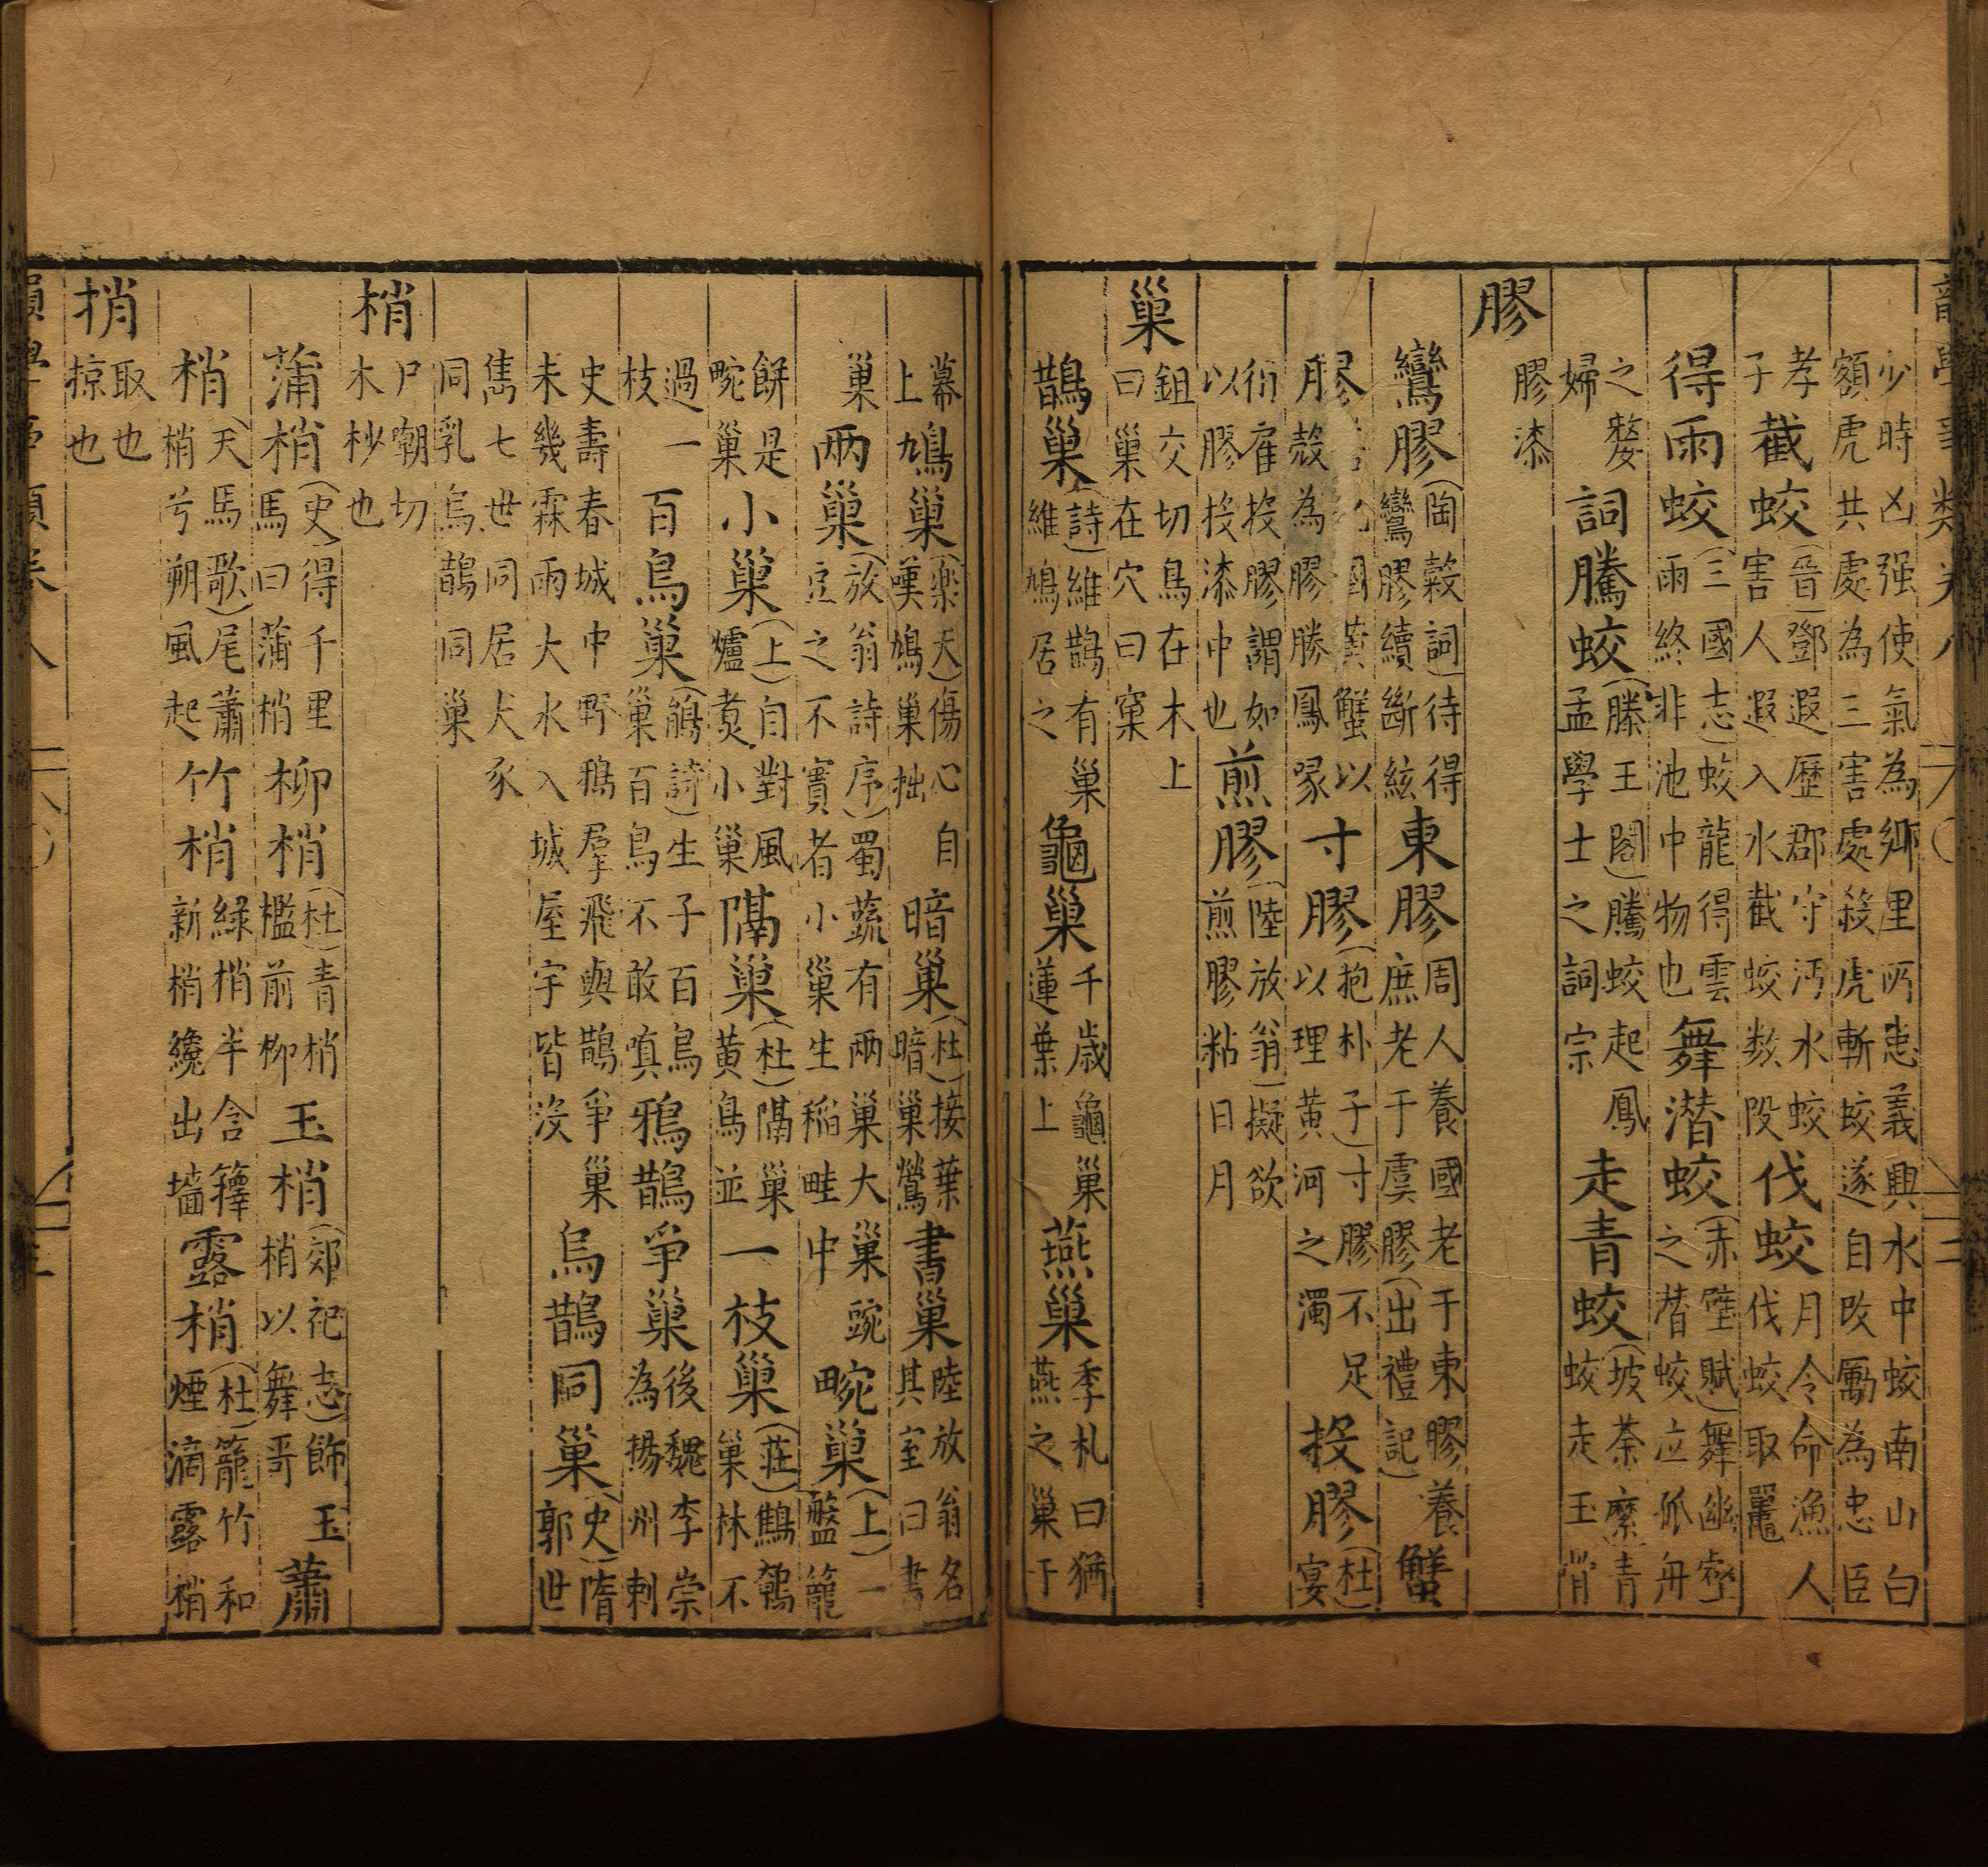 少時凶强使氣為鄉里所患義興水中蛟南山白額虎共處為三害處殺虎斬蛟遂自改厲為忠臣
孝子截蛟(晉)鄧遐歷郡守沔水蛟害人遐入水截蛟数段伐蛟月令命漁人伐蛟取鼉
得雨蛟(三國志)蛟龍得雲雨終非池中物也舞潜蛟(赤壁賦)舞幽壑之潜蛟泣孤舟
之嫠婦詞騰蛟(滕王閣)騰蛟起鳳孟學士之詞宗走青蛟(坡荼縻)青蛟走玉骨
膠膠漆
鸞膠(陶穀詞)待得鸞膠續斷絃東膠周人養國老于東膠養庶老于虞膠(出禮記)蟹
膠國貢蟹以殼為膠勝鳳喙寸膠(抱朴子)寸膠不足以理黄河之濁投膠(杜)宴
衎雇投膠謂如以膠投漆中也煎膠(陸放翁)擬欲煎膠粘日月
巢鉏交切鳥在木上曰巢在穴曰窠
鵲巢(詩)維鵲有巢維鳩居之龜巢千歳龜巢蓮葉上燕巢季札曰猶燕之巢于
幕上鳩巢(樂天)傷心自嘆鳩巢拙暗巢(杜)接葉暗巢鶯書巢陸放翁名其室曰書
巢兩巢(放翁詩序)蜀蔬有兩巢大巢豌豆之不實者小巢生稲畦中豌巢(上)一盤籠
餅是豌巢小巢(上)自對風爐煑小巢隔巢(杜)隔巢黄鳥並一枝巢(莊)鷦鷯巢林不
過一枝百鳥巢(鵑詩)生子百鳥巢百鳥不敢嗔鴉鵲爭巢後魏李崇為揚州刺
史壽春城中野鴉羣飛與鵲爭巢未幾霖雨大水入城屋宇皆沒烏鵲同巢(史)隋郭世
雋七世同居犬豕同乳烏鵲同巢
梢尸嘲切木杪也
蒲梢(史)得千里馬曰蒲梢柳梢(杜)青梢檻前柳玉梢(郊祀志)飾玉梢以舞哥蕭
梢(天馬歌)尾蕭梢兮朔風起竹梢綠梢半含籜新梢纔出墻露梢(杜)籠竹和煙滴露梢
捎取也掠也